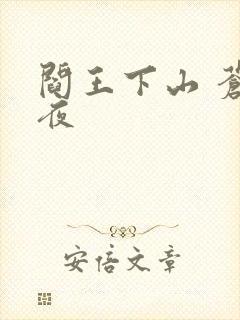 閻王下山 蒼
夜
安倍文章